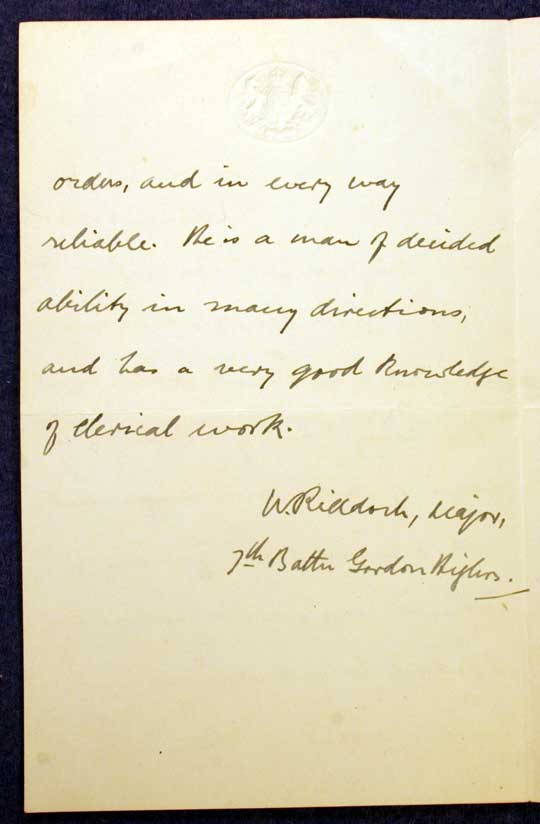 orders, and in every way
reliable. He is a man of decided
ability in many directions,
and has a very good knowledge
of clerical work.
W. Riddoch, Major,
7th Battn Gordon Highrs.